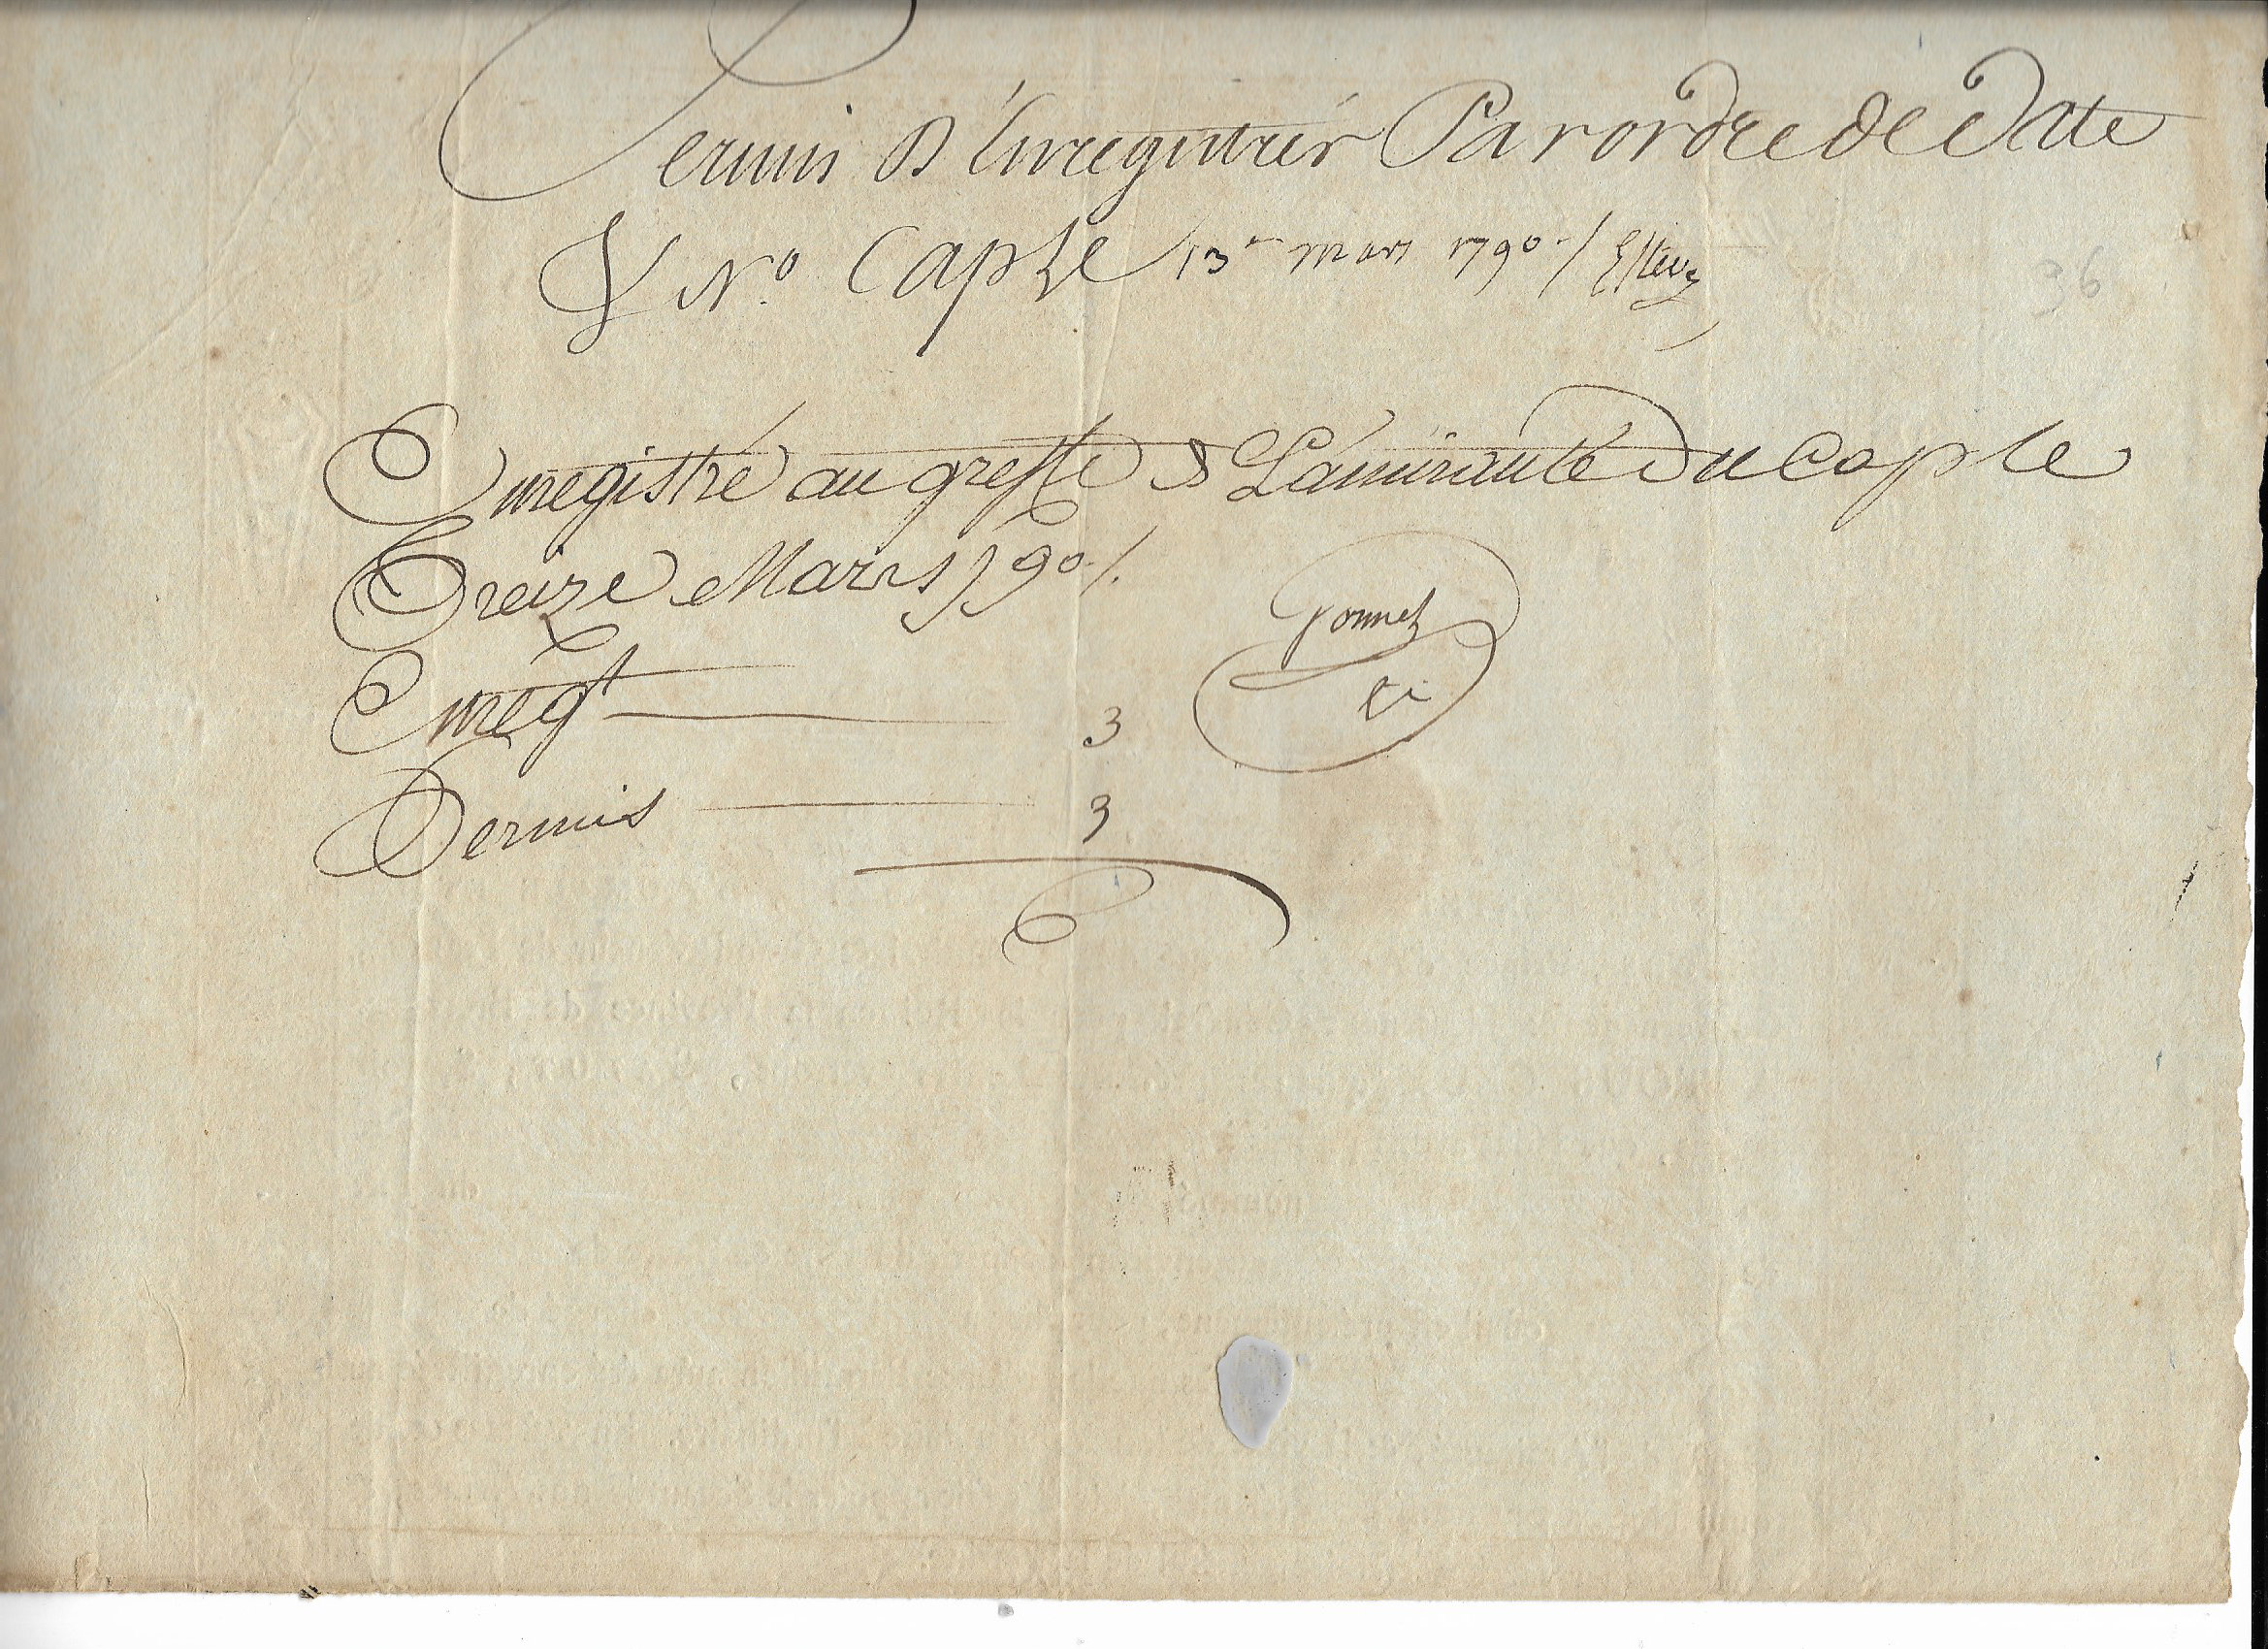 Permis d'Enregistrer Par ordre de date
& N.o Cap le 13 mars 1790 ./. Esteve
36
Enregistré au greffe de L'amirauté Du Cap le
Treize Mars 1790 ./.
Enregt 3
Permis 3